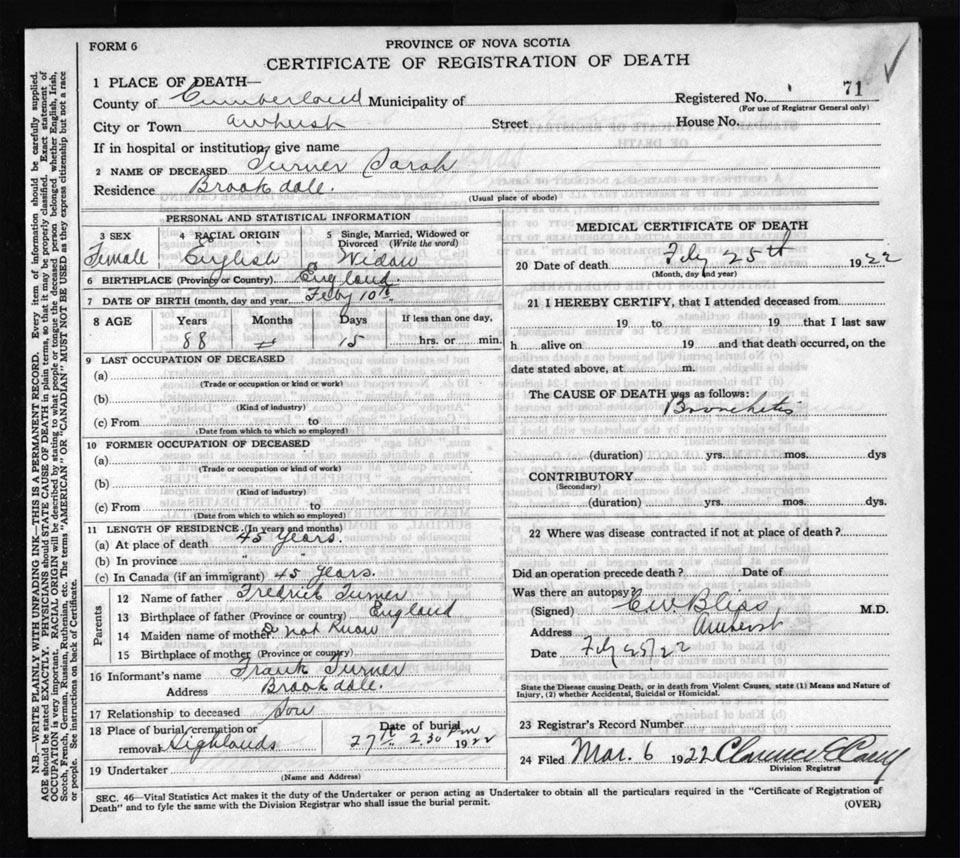 FORM 6
PROVINCE OF NOVA SCOTIA
CERTIFICATE OF REGISTRATION OF DEATH
1 PLACE OF DEATH—
County of Cumberland Municipality of Registered No. 71
(For use of Registrar General only)
City or Town Amherst Street House No.
If in hospital or institution, give name
2 NAME OF DECEASED Turner Sarah
Residence Brookdale.
(Usual place of abode)
PERSONAL AND STATISTICAL INFORMATION
3 SEX 4 RACIAL ORIGIN 5 Single, Married, Widowed or Divorced (Write the word)
Female English Widow
6 BIRTHPLACE (Province or Country) England.
7 DATE OF BIRTH (month, day and year) Feby 10th
8 AGE Years Months Days If less than one day,
88 15 hrs. or min.
9 LAST OCCUPATION OF DECEASED
(a)
(Trade or occupation or kind or work)
(b)
(Kind of industry)
(c) From to
(Date from which to which so employed)
10 FORMER OCCUPATION OF DECEASED
(a)
(Trade or occupation or kind of work)
(b)
(Kind of industry)
(c) From to
(Date from which to which so employed)
11 LENGTH OF RESIDENCE: (In years and months)
(a) At place of death 45 years.
(b) In province " "
(c) In Canada (if an immigrant) 45 years.
Parents
12 Name of father Fredrick Turner
13 Birthplace of father (Province or country) England
14 Maiden name of mother Do not Know
15 Birthplace of mother (Province or country)
16 Informant's name Frank Turner
Address Brookdale.
17 Relationship to deceased Son
18 Place of burial, cremation or removal Highlands Date of burial 27th 2.30 pm 1922
19 Undertaker
(Name and Address)
MEDICAL CERTIFICATE OF DEATH
20 Date of death Feby 25th 1922
(Month, day and year)
21 I HEREBY CERTIFY, that I attended deceased from
19 to 19 that I last saw
h alive on 19 and that death occurred, on the
date stated above, at m.
The CAUSE OF DEATH was as follows:
Bronchitis
(duration) yrs. mos. dys
CONTRIBUTORY
(Secondary)
(duration) yrs. mos. dys.
22 Where was disease contracted if not at place of death?
Did an operation precede death? Date of
Was there an autopsy?
(Signed) C W Bliss M.D.
Address Amherst
Date Feby 25/22
State the Disease causing Death, or in death from Violent Causes, state (1) Means and Nature of
Injury, (2) whether Accidental, Suicidal or Homicidal.
23 Registrar's Record Number
24 Filed Mar. 6 1922 Clarence
Division Registrar
SEC. 46—Vital Statistics Act makes it the duty of the Undertaker or person acting as Undertaker to obtain all the particulars required in the "Certificate of Registration of
Death" and to fyle the same with the Division Registrar who shall issue the burial permit.
(OVER)
N.B.—WRITE PLAINLY WITH UNFADING INK—THIS IS A PERMANENT RECORD. Every item of information should be carefully supplied.
AGE should be stated EXACTLY. PHYSICIANS should STATE CAUSE OF DEATH in plain terms, so that it may be properly classified. Exact statement of
OCCUPATION is very important. RACIAL ORIGIN will be described by stating to what people or tongue the deceased person belonged, whether English, Irish,
Scotch, French, German, Russian, Ruthenian, etc. The terms "AMERICAN" OR "CANADIAN" MUST NOT BE USED as they express citizenship but not a race
or people. See instructions on back of Certificate.